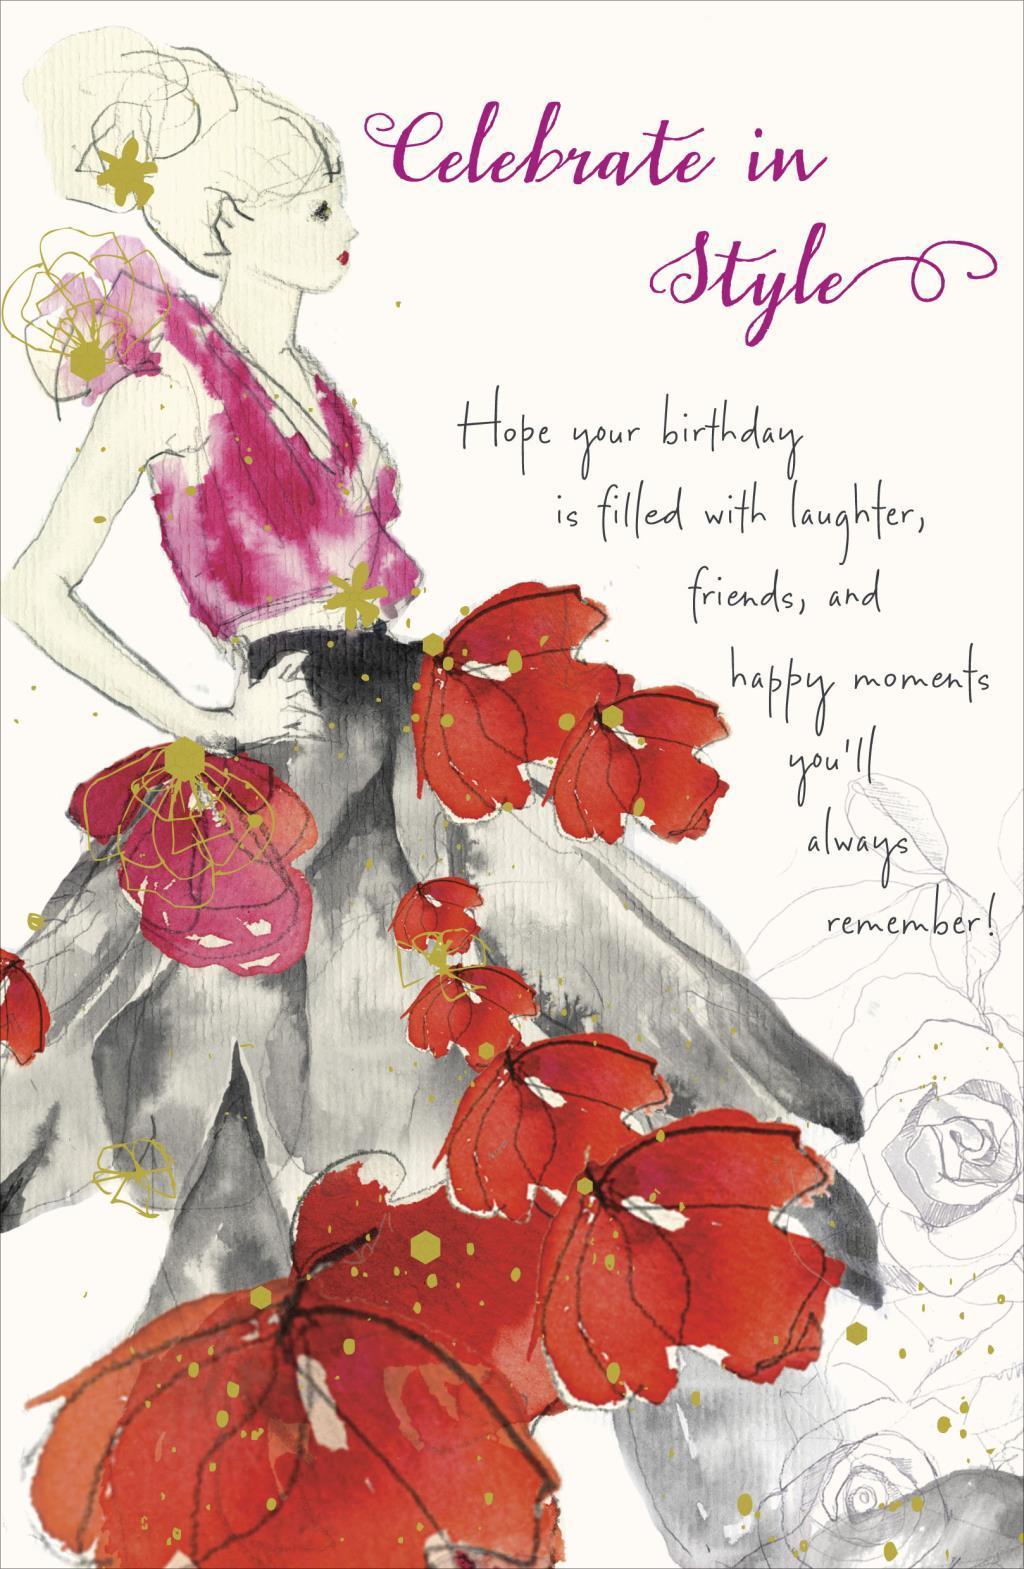 Celebrate in
Style
Hope your birthday
is filled with laughter,
friends, and
happy moments
you'll
always
remember!